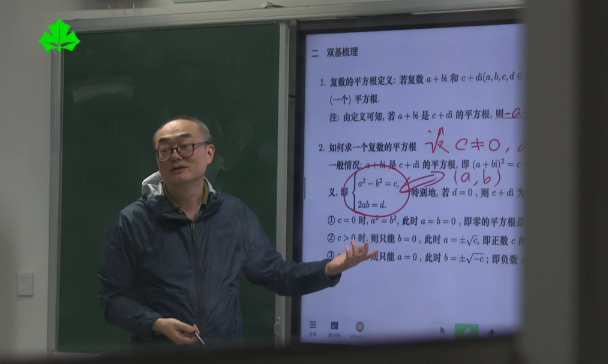 二 双基梳理
1. 复数的平方根定义: 若复数 a + bi 和 c + di(a, b, c, d ∈
(一个) 平方根.
注: 由定义可知, 若 a + bi 是 c + di 的平方根, 则 -a
2. 如何求一个复数的平方根 设 C≠0,
一般情况: a + bi 是 c + di 的平方根, 即 (a + bi)² = c
(a, b)
义, 即 { a² − b² = c, 特别地, 若 d = 0, 则 c + di 为
2ab = d.
① c = 0 时, a² = b², 此时 a = b = 0, 即零的平方根是
② c > 0 时, 则只能 b = 0, 此时 a = ±√c, 即正数 c 的
则只能 a = 0, 此时 b = ±√−c; 即负数